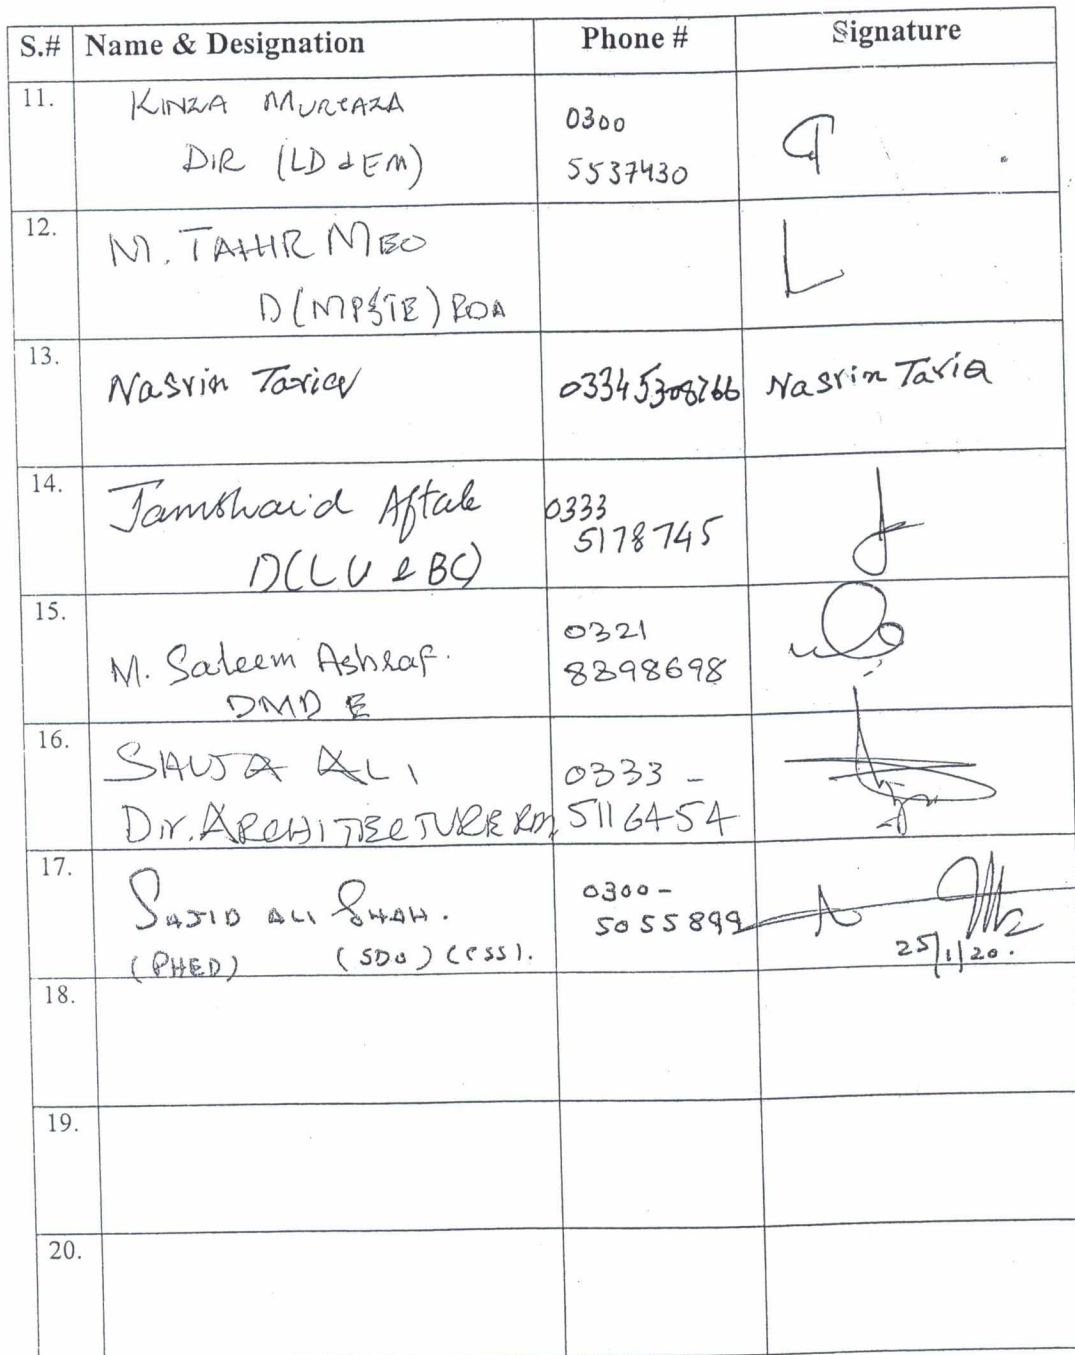 S.# Name & Designation Phone # Signature
11. KINZA MURTAZA
DIR (LD & EM)
0300
5537430
12. M. TAHIR MEO
D(MP&TE) RDA
13. Nasrin Tariq 03345308766 Nasrin Tariq
14. Jamshaid Aftab
D(LU & BC)
0333
5178745
15. M. Saleem Ashraf.
DMD E
0321
8398698
16. ALI
Dir. ARCHITECTURE
0333 -
5116454
17. SAJID ALI SHAH.
(PHED) (SDO)
0300-
5055899
25/1/20.
18.
19.
20.